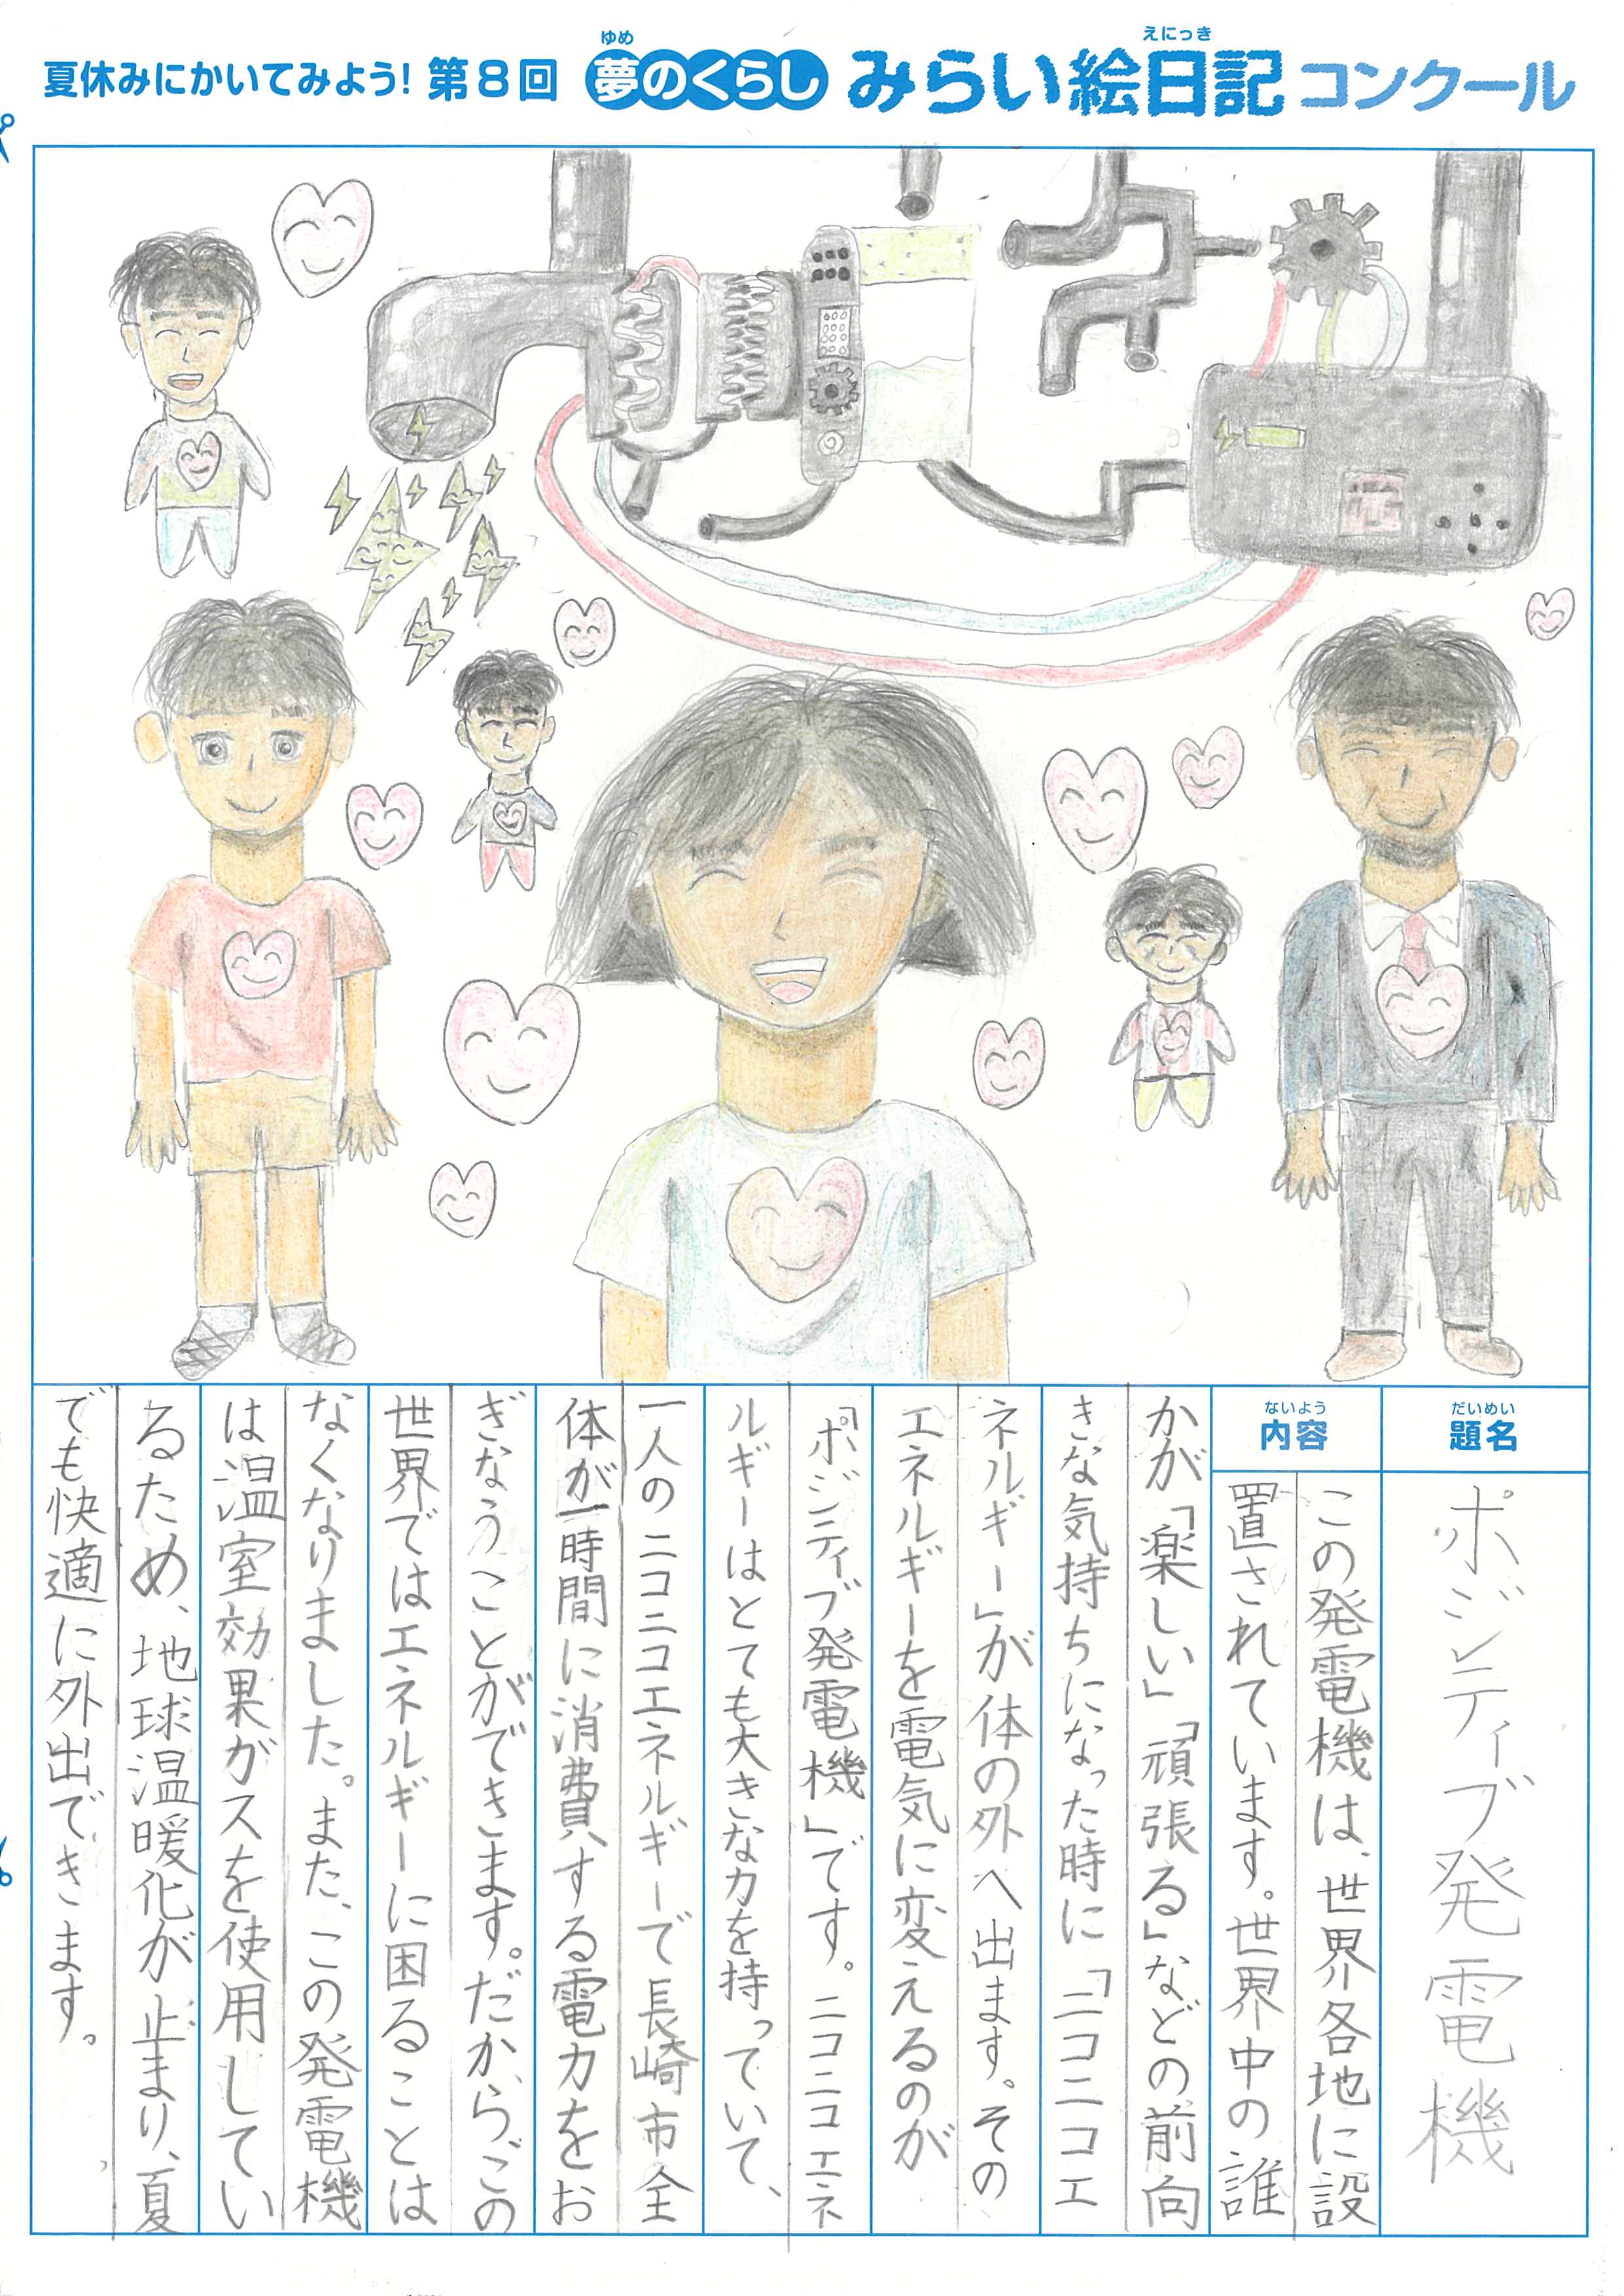 夏休みにかいてみよう! 第8回 夢のくらし みらい絵日記 コンクール
ゆめ
えにっき
だいめい
題名
ポジティブ発電機
ないよう
内容
この発電機は、世界各地に設
置されています。世界中の誰
かが「楽しい」「頑張る」などの前向
きな気持ちになった時に「ニコニコエ
ネルギー」が体の外へ出ます。その
エネルギーを電気に変えるのが
「ポジティブ発電機」です。ニコニコエネ
ルギーはとても大きな力を持っていて、
一人のニコニコエネルギーで長崎市全
体が一時間に消費する電力をお
ぎなうことができます。だから、この
世界ではエネルギーに困ることは
なくなりました。また、この発電機
は温室効果ガスを使用してい
るため、地球温暖化が止まり、夏
でも快適に外出できます。